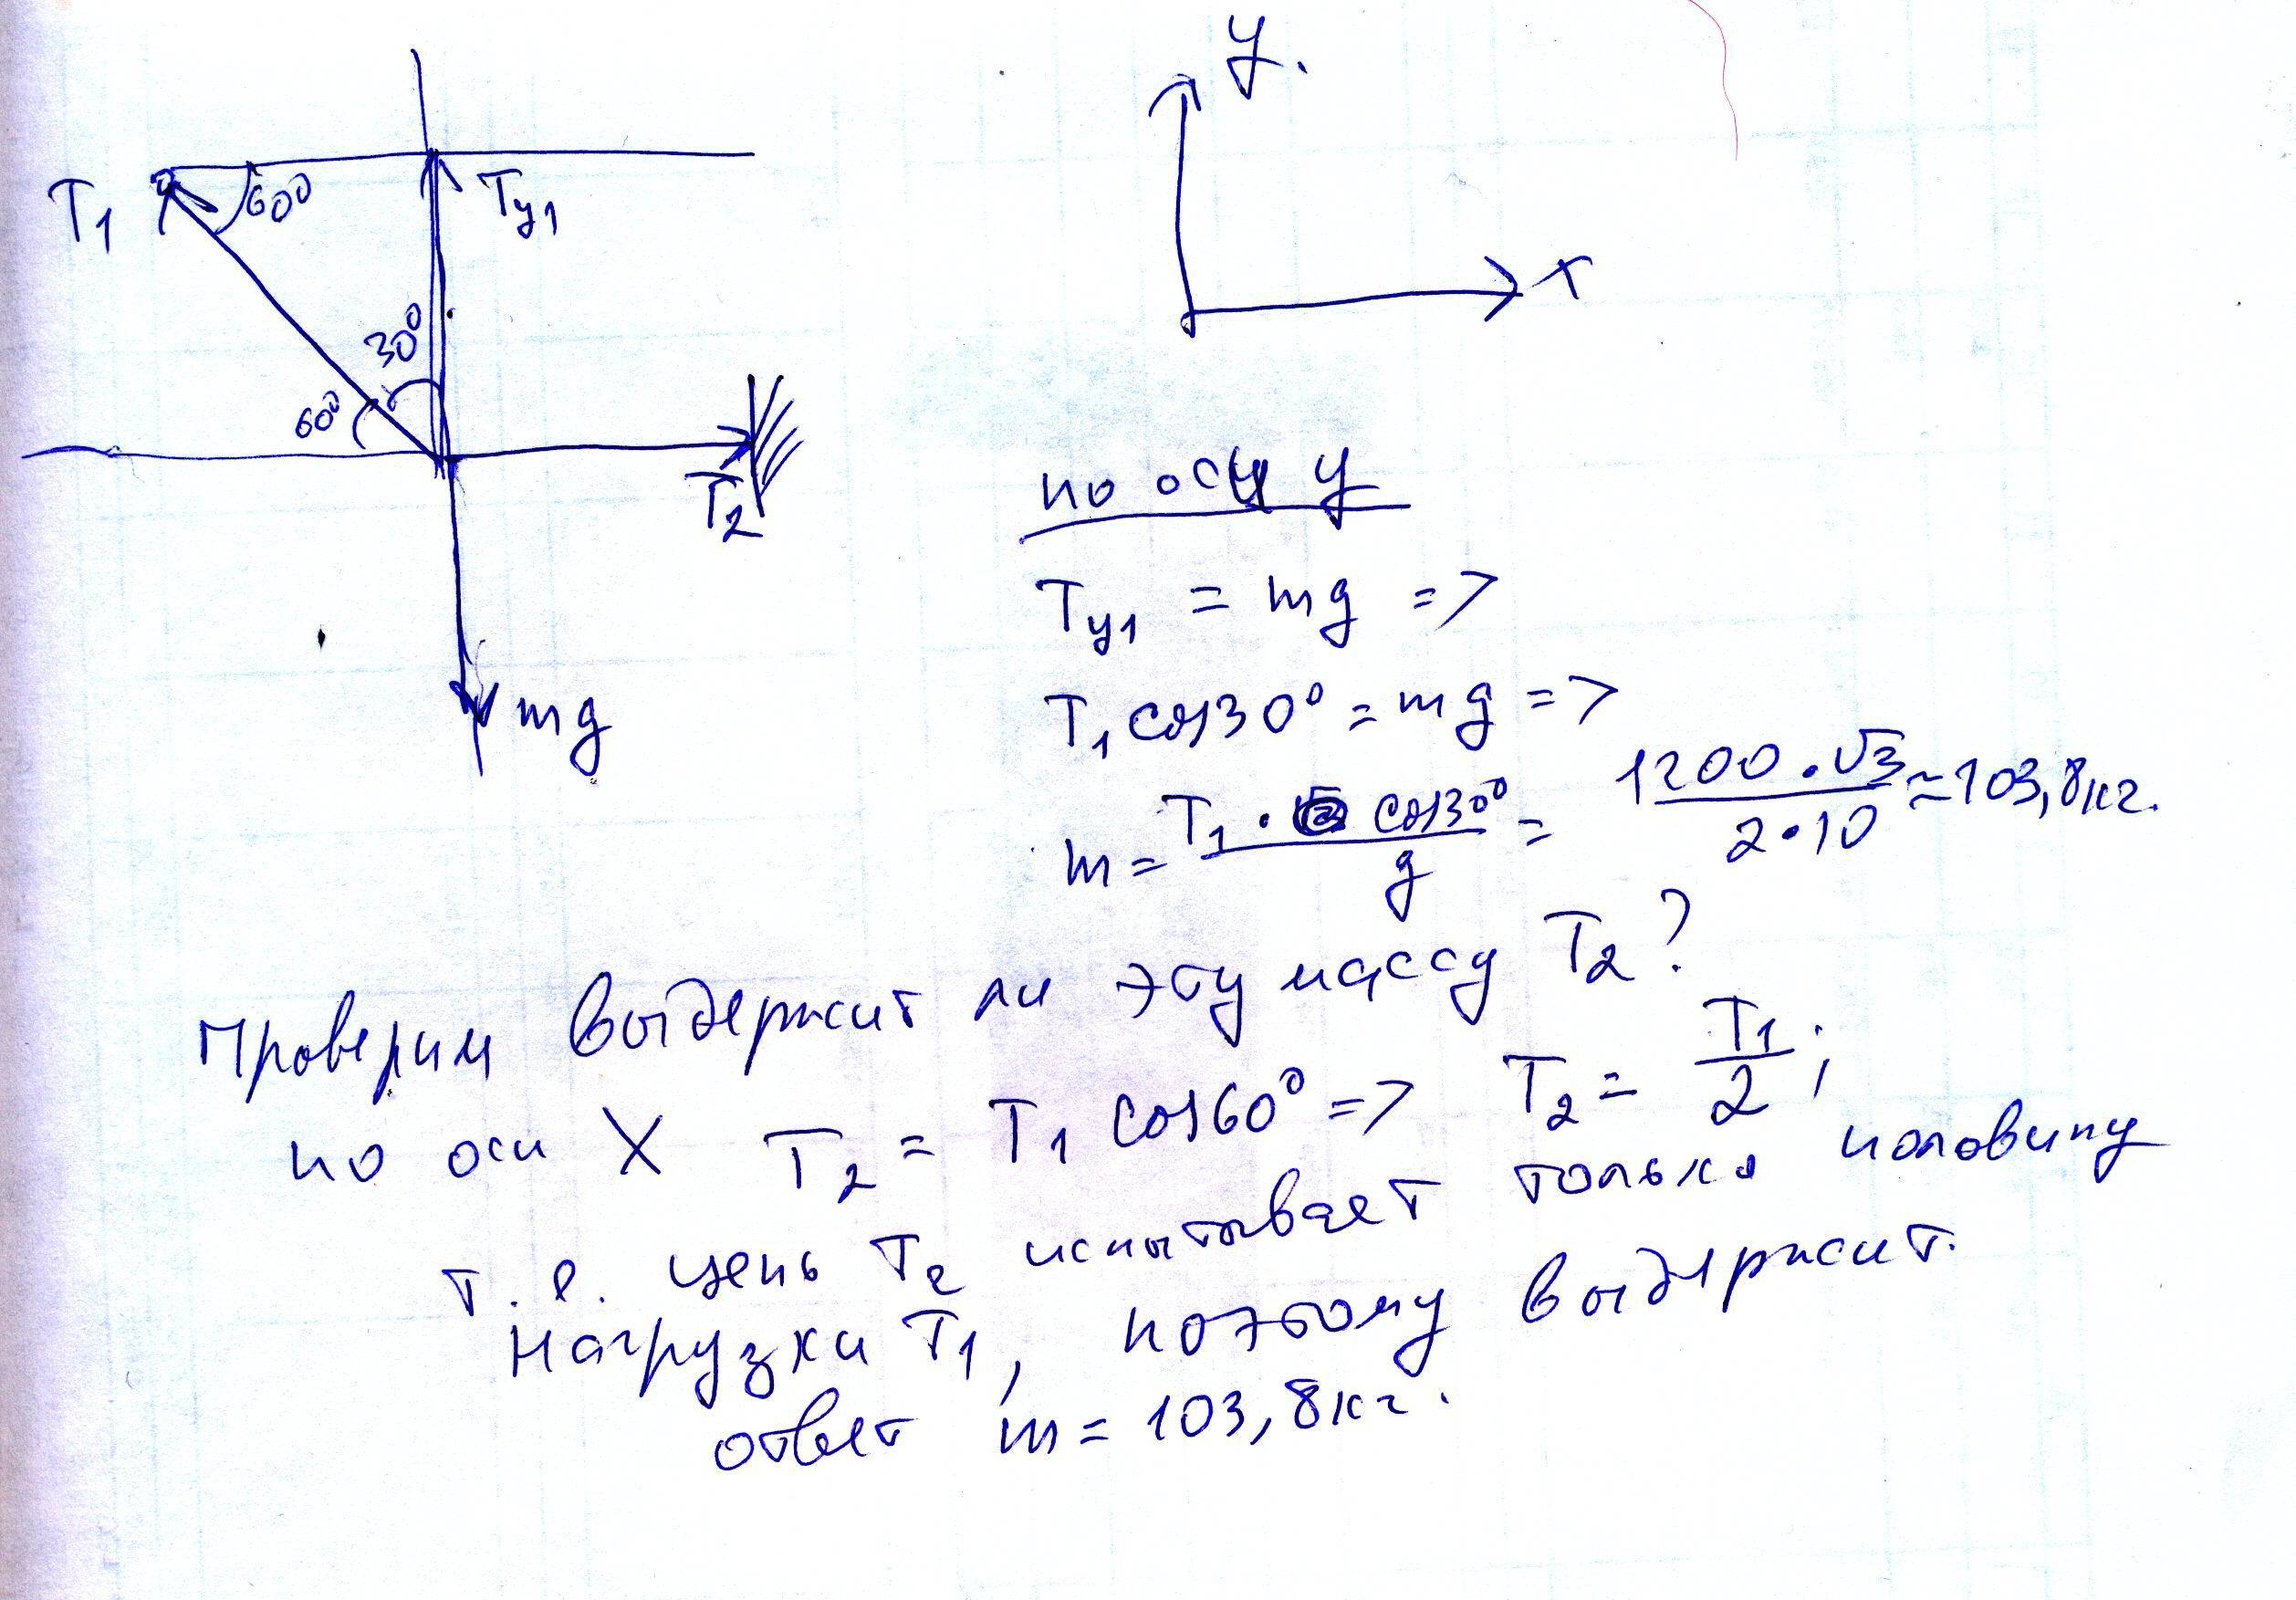 y.
T1 60° Ty1
x
30°
60°
T2
по оси y
Ty1 = mg =>
mg
T1 cos30° = mg =>
m = T1 · cos30° / g = 1200 · √3 / 2 · 10 ≈ 103,8 кг.
Проверим выдержит ли эту массу T2?
по оси X T2 = T1 cos60° => T2 = T1 / 2 ;
т. е. цепь T2 испытывает только половину
нагрузки T1, поэтому выдержит.
ответ m = 103,8 кг.